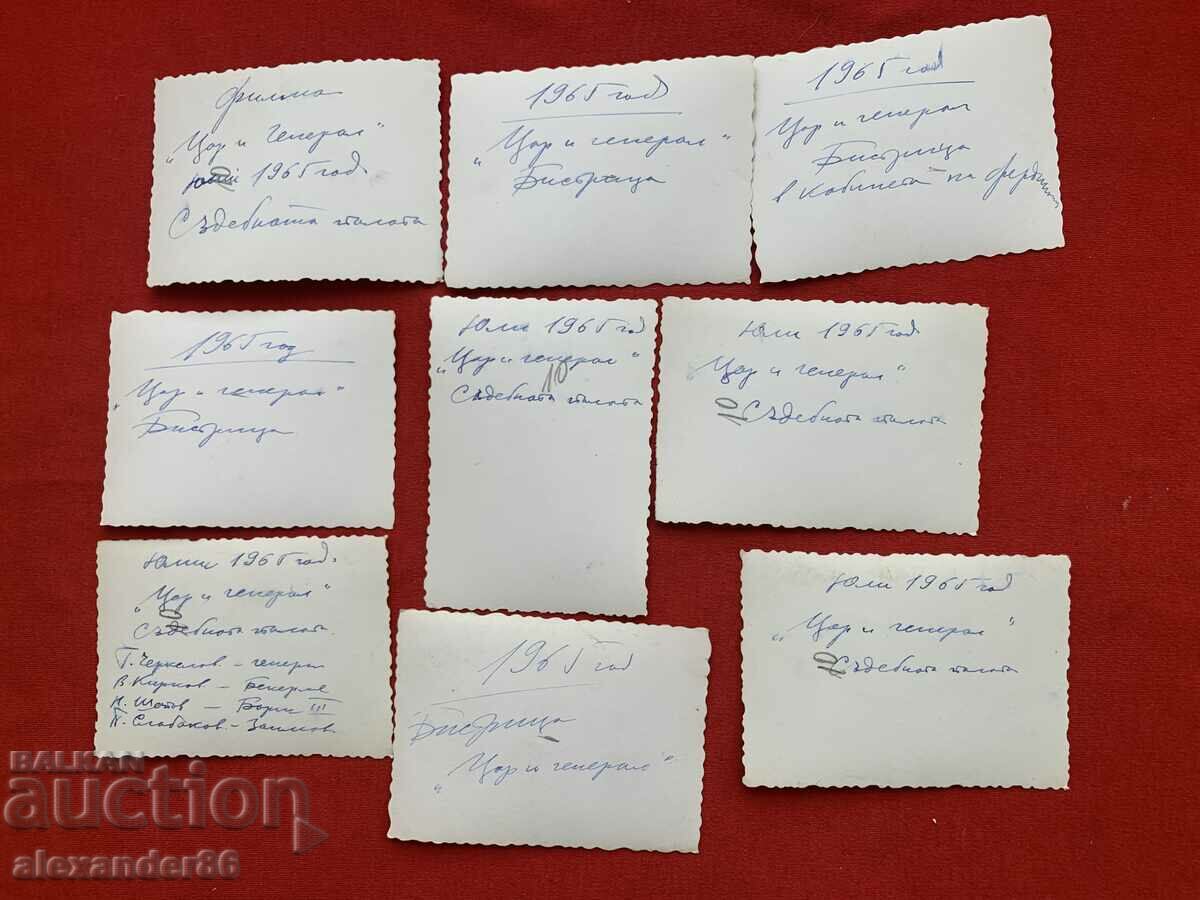 филма
„Цар и Генерал"
юли 1965 год.
10
Съдебната палата
1965 год
„Цар и генерал"
Бистрица
1965 год
Цар и генерал
Бистрица
в кабинета на Фердинанд
1965 год
„Цар и генерал"
Бистрица
Юли 1965 год
„Цар и генерал"
10
Съдебната палата
Юли 1965 год
„Цар и генерал"
10 Съдебната палата
Юли 1965 год.
„Цар и генерал"
Съдебната палата.
Г. Черкелов - генерал
В. Кирков - Бекерле
Н. Шотов - Борис III
П. Слабаков - Заимов
1965 год
Бистрица
„Цар и генерал"
Юли 1965 год
„Цар и генерал"
10 Съдебната палата
BALKAN
auction
alexander86